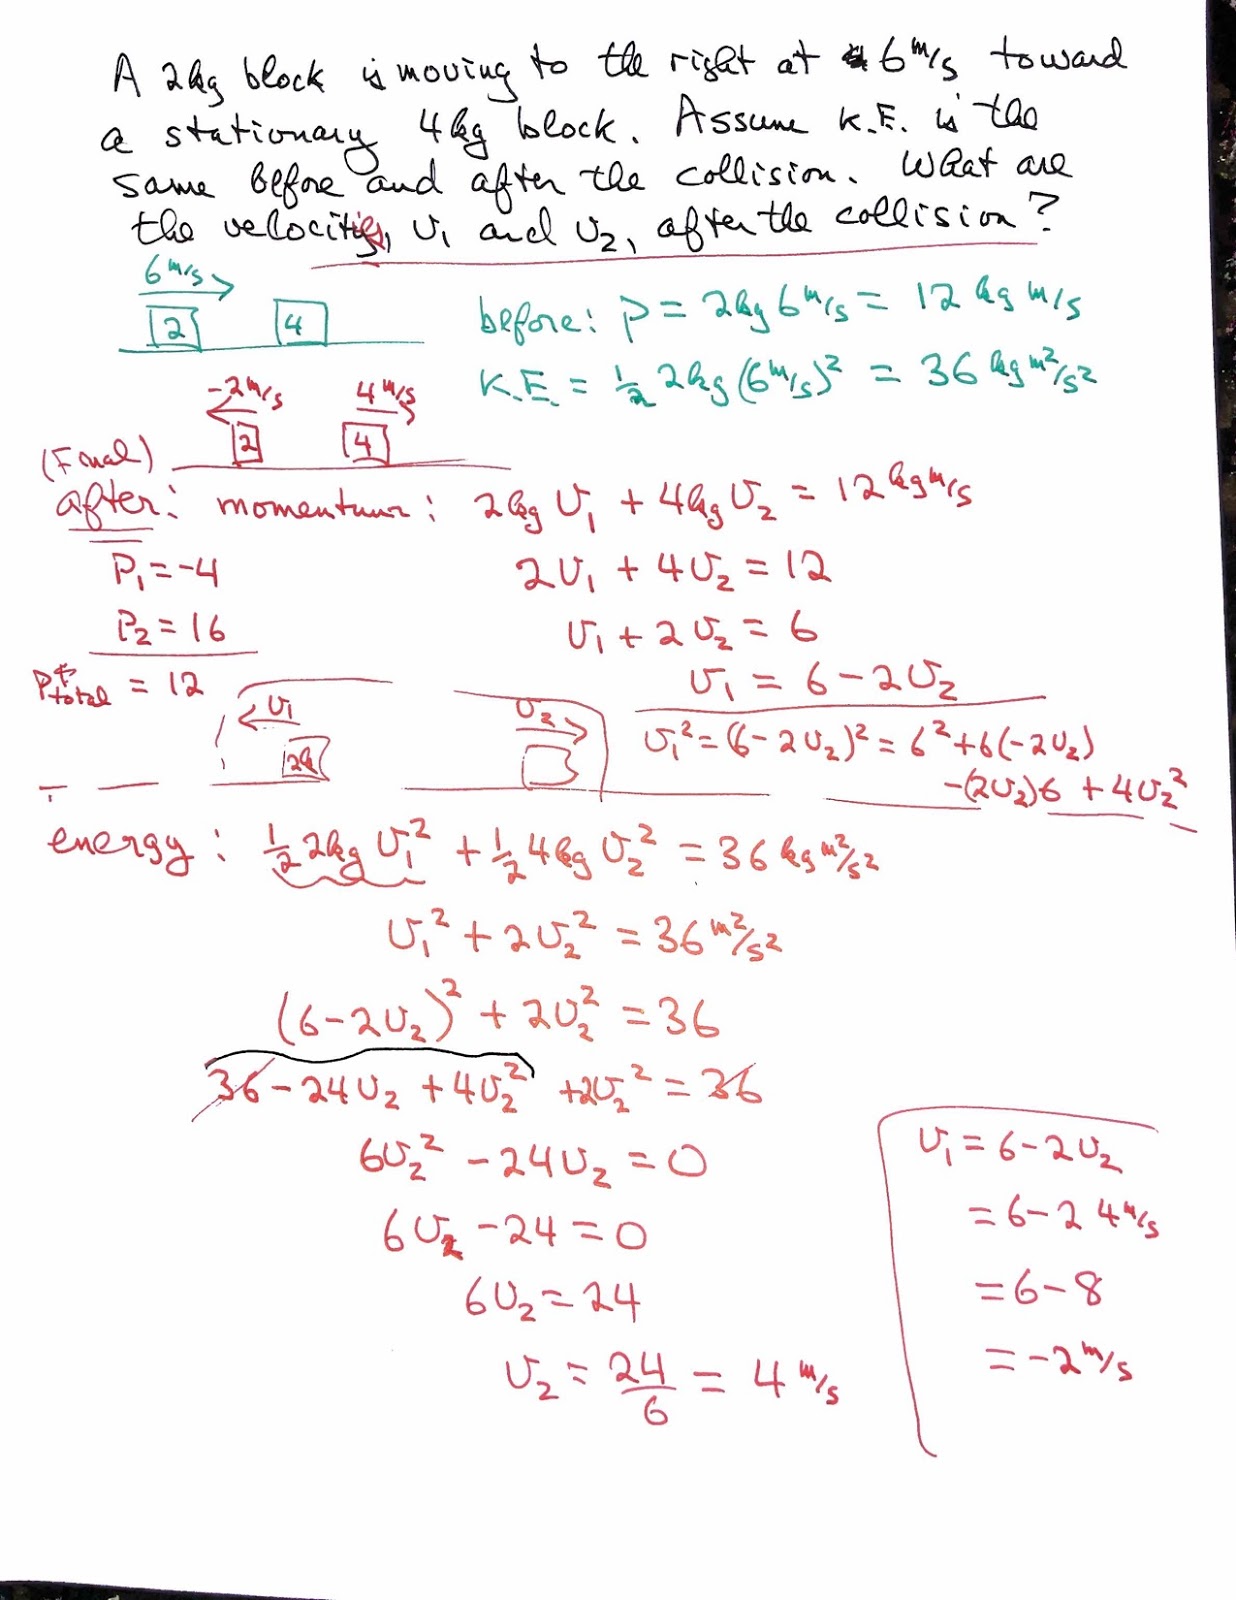 A 2kg block is moving to the right at 6 m/s toward
a stationary 4kg block. Assume K.E. is the
same before and after the collision. What are
the velocities, v₁ and v₂, after the collision?
6 m/s
2 4
before: p = 2kg 6 m/s = 12 kg m/s
K.E. = ½ 2kg (6 m/s)² = 36 kg m²/s²
-2 m/s 4 m/s
2 4
(Final)
after: momentum: 2kg v₁ + 4kg v₂ = 12 kg m/s
P₁ = -4
2v₁ + 4v₂ = 12
P₂ = 16
v₁ + 2v₂ = 6
P total = 12
v₁ = 6 - 2v₂
v₁ v₂
v₁² = (6 - 2v₂)² = 6² + 6(-2v₂)
-(2v₂)6 + 4v₂²
energy: ½ 2kg v₁² + ½ 4kg v₂² = 36 kg m²/s²
v₁² + 2v₂² = 36 m²/s²
(6 - 2v₂)² + 2v₂² = 36
36 - 24v₂ + 4v₂² + 2v₂² = 36
6v₂² - 24v₂ = 0
6v₂ - 24 = 0
6v₂ = 24
v₂ = 24/6 = 4 m/s
v₁ = 6 - 2v₂
= 6 - 2 4 m/s
= 6 - 8
= -2 m/s